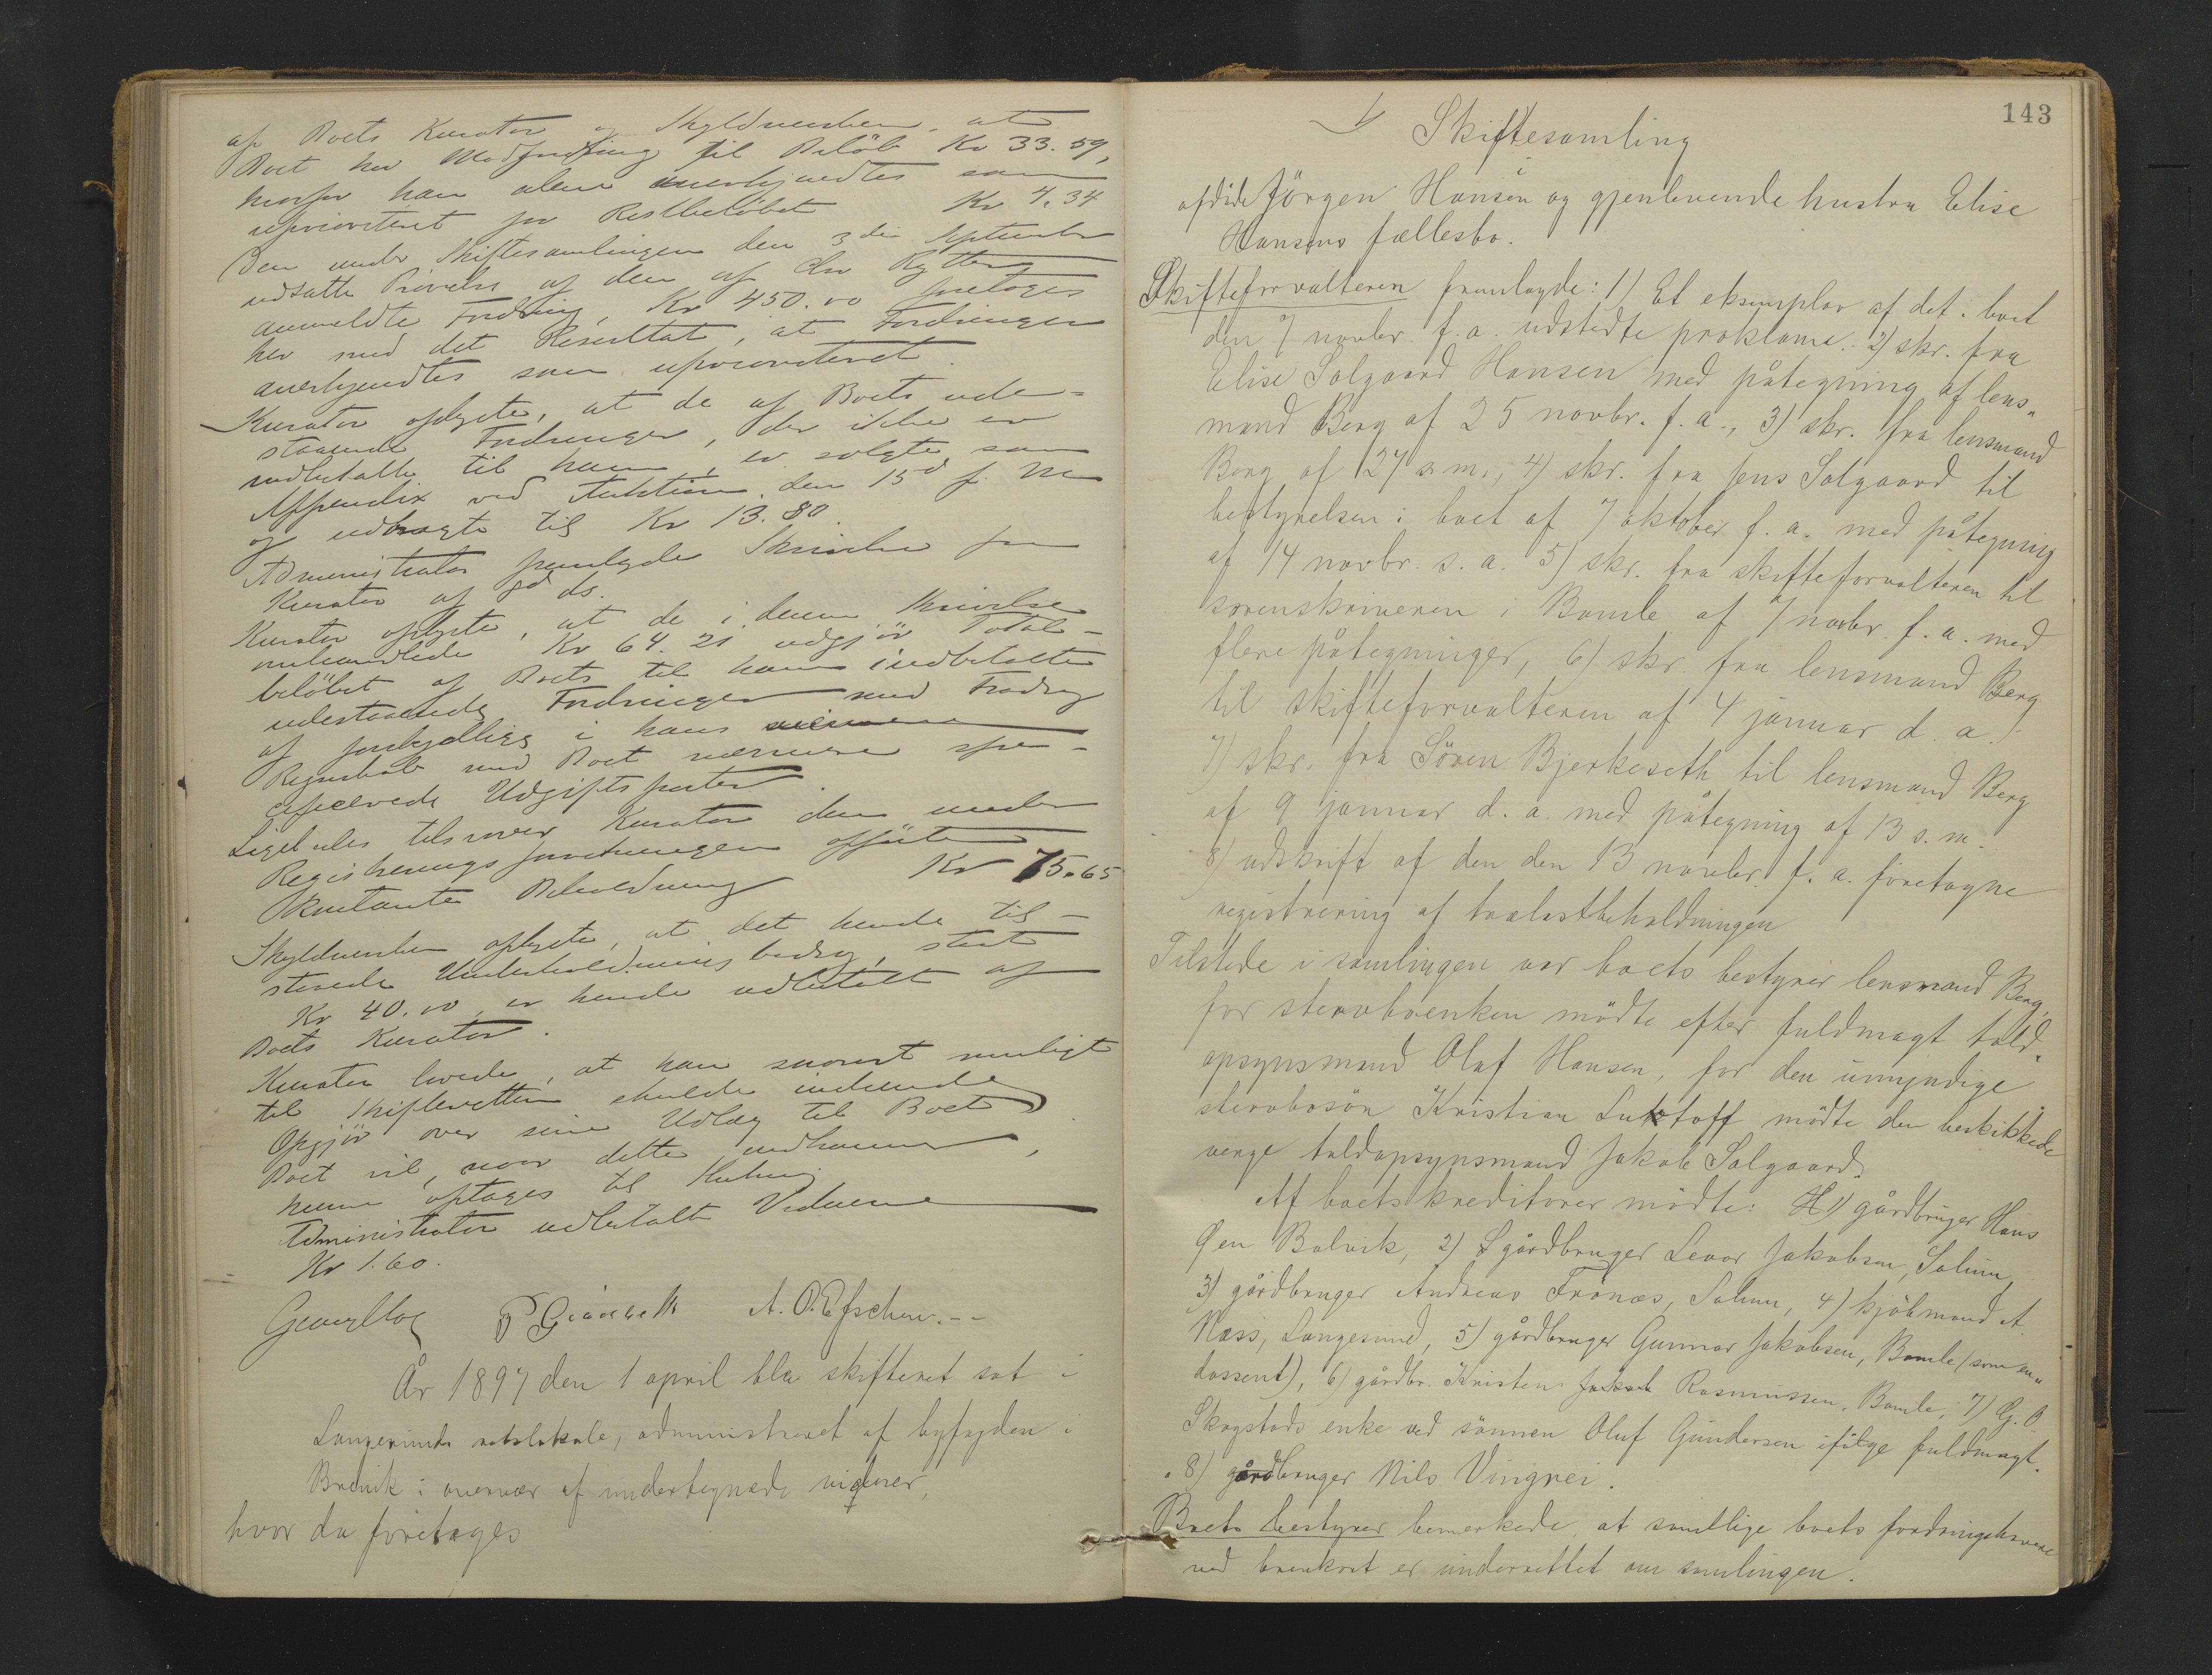 af Boets Kurator og Skyldnersken, at
Boet har Modfordring til Beløb Kr 33.59,
hvorfor han alene anerkjendtes som
uprioriteret for Restbeløbet Kr 4.34
Den under Skiftesamlingen den 3die September
udsatte Prøvelse af den af Chr Rytter
anmeldte Fordring, Kr 450.00 foretoges
her med det Resultat, at Fordringen
anerkjendtes som uprioriteret.
Kurator oplyste, at de af Boets ude-
staaende Fordringer, der ikke er
indbetalte til ham, er solgte som
Appendix ved Auktion den 15d f. M
og udbragte til Kr 13.80.
Administrator fremlagde Skrivelse fra
Kurator af ds.
Kurator oplyste, at de i denne Skrivelse
omhandlede Kr 64.21 udgjør Total-
beløbet af Boets til ham indbetalte
udestaaende Fordringer med Fradrag
af forskjellige i hans
Regnskab med Boet nærmere spe-
cificerede Udgiftsposter.
Ligeledes tilsvarer Kurator den under
Registreringsforretningen opførte
kontante Beholdning Kr 75.65
Skyldnersken oplyste, at det hende til-
staaede Underholdningsbidrag, stort
Kr 40.00, er hende udbetalt af
Boets Kurator.
Kurator lovede, at han snarest muligt
til Skifteretten skulde indsende
Opgjør over sine Udlæg til Boet
Boet vil, naar dette indkommer,
kunne optages til
Administrator udbetalte Vidnerne
Kr 1.60.
A. O. Efschen.--
År 1897 den 1 april blev skifteret sat i
Langesunds retslokale, administreret af byfogden i
Brevik i overvær af undertegnede vidner,
hvor da foretoges
143
1/ Skiftesamling
i afdøde Jörgen Hansen og gjenlevende hustru Elise
Hansens fællesbo.
Skifteforvalteren fremlagde: 1) Et eksemplar af det i boet
den 7 novbr. f. a. udstedte proklama. 2) skr. fra
Elise Salgaard Hansen med påtegning af lens„
mand Berg af 25 novbr. f. a., 3) skr. fra lensmand
Berg af 27 s. m., 4) skr. fra Jens Salgaard til
bestyrelsen i boet af 7 oktober f. a. med påtegning
af 14 novbr. s. a. 5) skr. fra skifteforvalteren til
sorenskriveren i Bamle af 7 novbr. f. a. med
flere påtegninger, 6) skr. fra lensmand Berg
til skifteforvalteren af 4 januar d. a.
7) skr. fra Sören Bjerkeseth til lensmand Berg
af 9 januar d. a. med påtegning af 13 s. m.
8) udskrift af den den 13 novbr. f. a. foretagne
registrering af trælastbeholdningen
Tilstede i samlingen var boets bestyrer lensmand Berg,
for stervboenken mödte efter fuldmagt told„
opsynsmand Oluf Hansen, for den umyndige
stervbosön Kristian mödte den beskikkede
verge toldopsynsmand Jakob Salgaard.
Af boets kreditorer mödte: 1) gårdbruger Hans
Gen Balvik, 2) gårdbruger Levor Jakobsen, Solum,
3) gårdbruger Andreas Frönæs, Solum, 4) kjöbmand A.
Næss, Langesund, 5) gårdbruger Gunnar Jakobsen, Bamle (som en„
dossent), 6) gårdbr. Kristen Jakob Rasmussen, Bamle, 7) G. O.
Skogstads enke ved sönnen Oluf Gundersen ifölge fuldmagt.
8) gårdbruger Nils Vingrei.
Boets bestyrer bemerkede, at samtlige boets fordringshavere
ved brevkort er underrettet om samlingen.